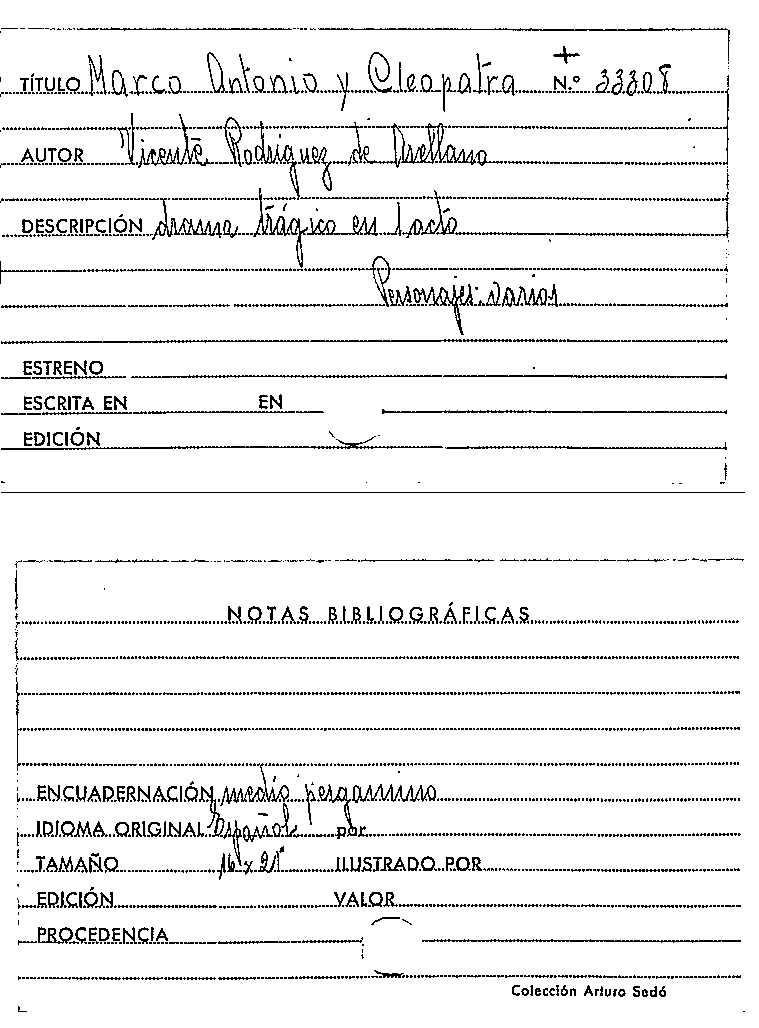 TÍTULO Marco Antonio y Cleopatra N.º 33308
AUTOR Vicente Rodriguez de Arellano
DESCRIPCIÓN drama trágico en 1 acto
Personajes: varios
ESTRENO
ESCRITA EN EN
EDICIÓN
NOTAS BIBLIOGRÁFICAS
ENCUADERNACIÓN medio pergamino
IDIOMA ORIGINAL Español por
TAMAÑO 16 x 21 ILUSTRADO POR
EDICIÓN VALOR
PROCEDENCIA
Colección Arturo Sedó